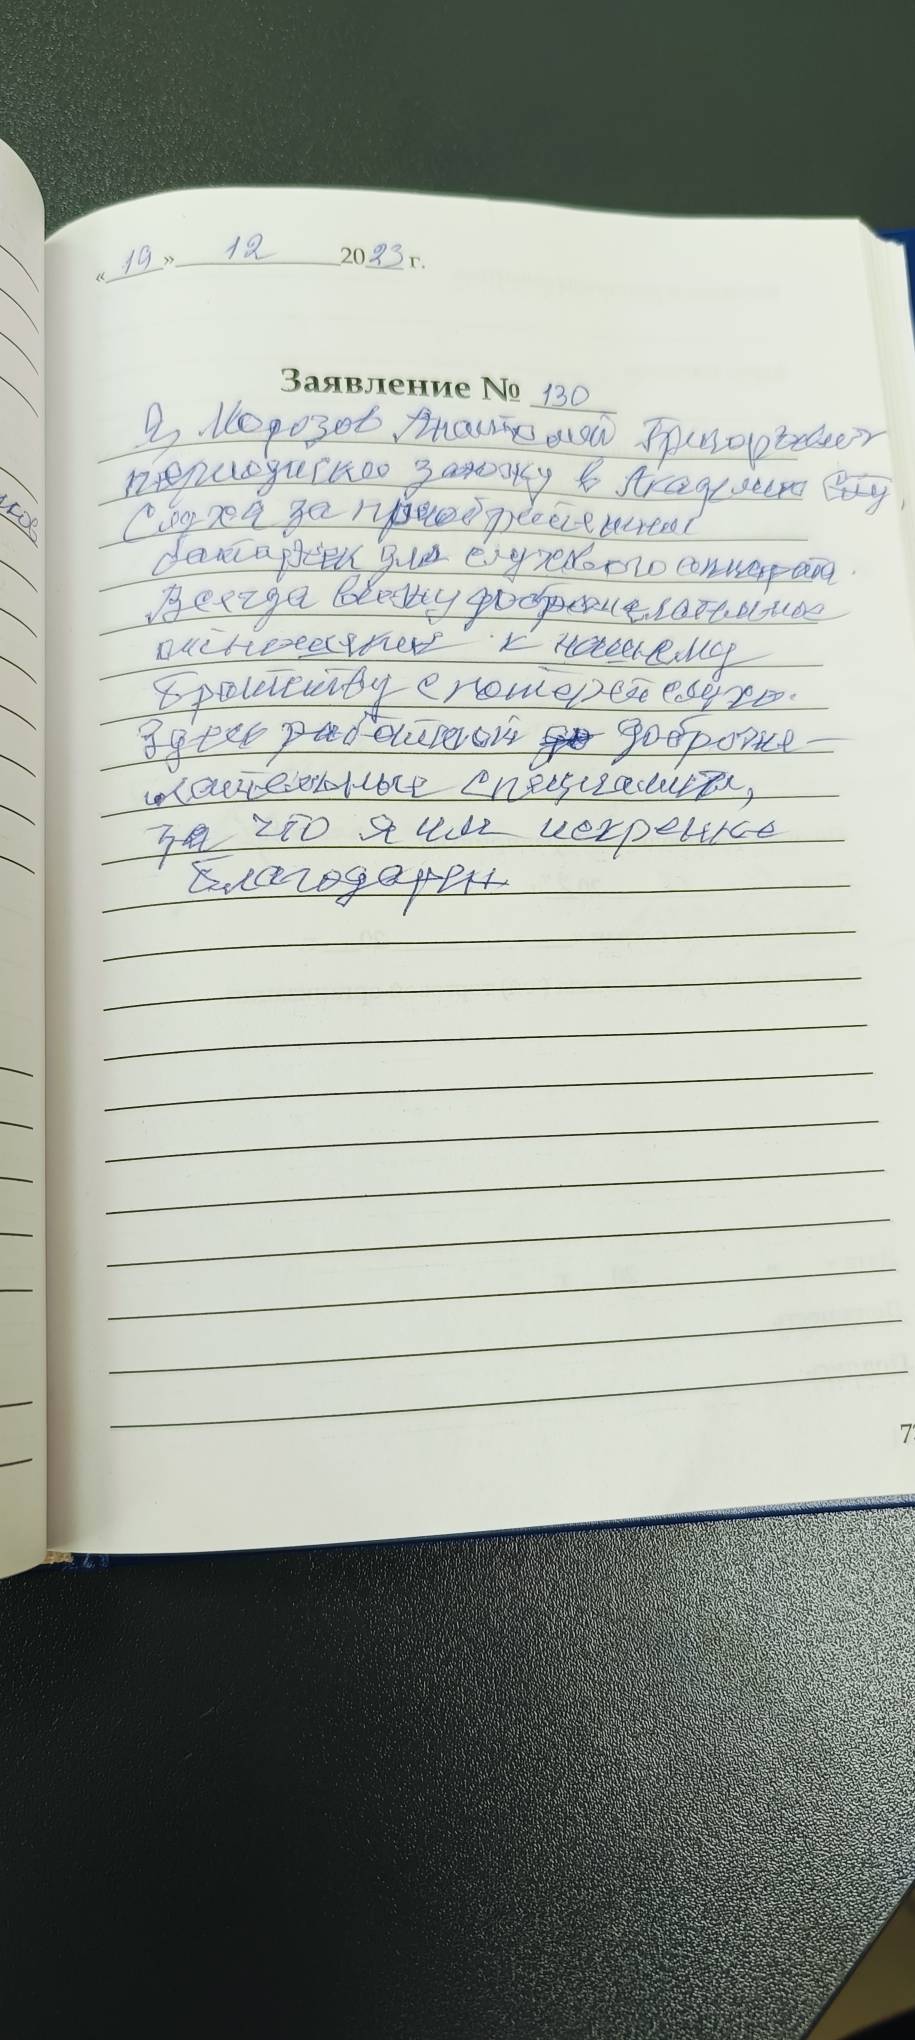 « 19 » 12 2023 г.
Заявление № 130
Я, Морозов Анатолий Григорьевич
периодически захожу в Академию
Слуха за приобретением
батареек для слухового аппарата.
Всегда вижу доброжелательное
отношение к нашему
братству с потерей слуха.
Здесь работают доброже-
лательные специалисты,
за что я им искренне
благодарен
ков